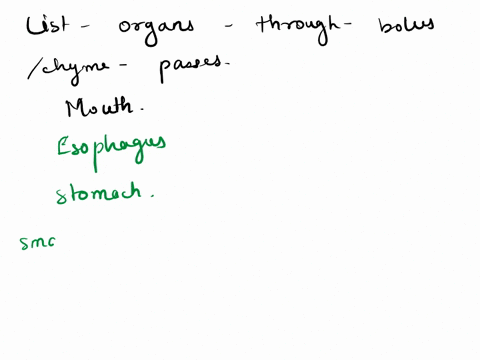 List - organs - through - bolus
/chyme - passes.
Mouth.
Esophagus
stomach.
sma